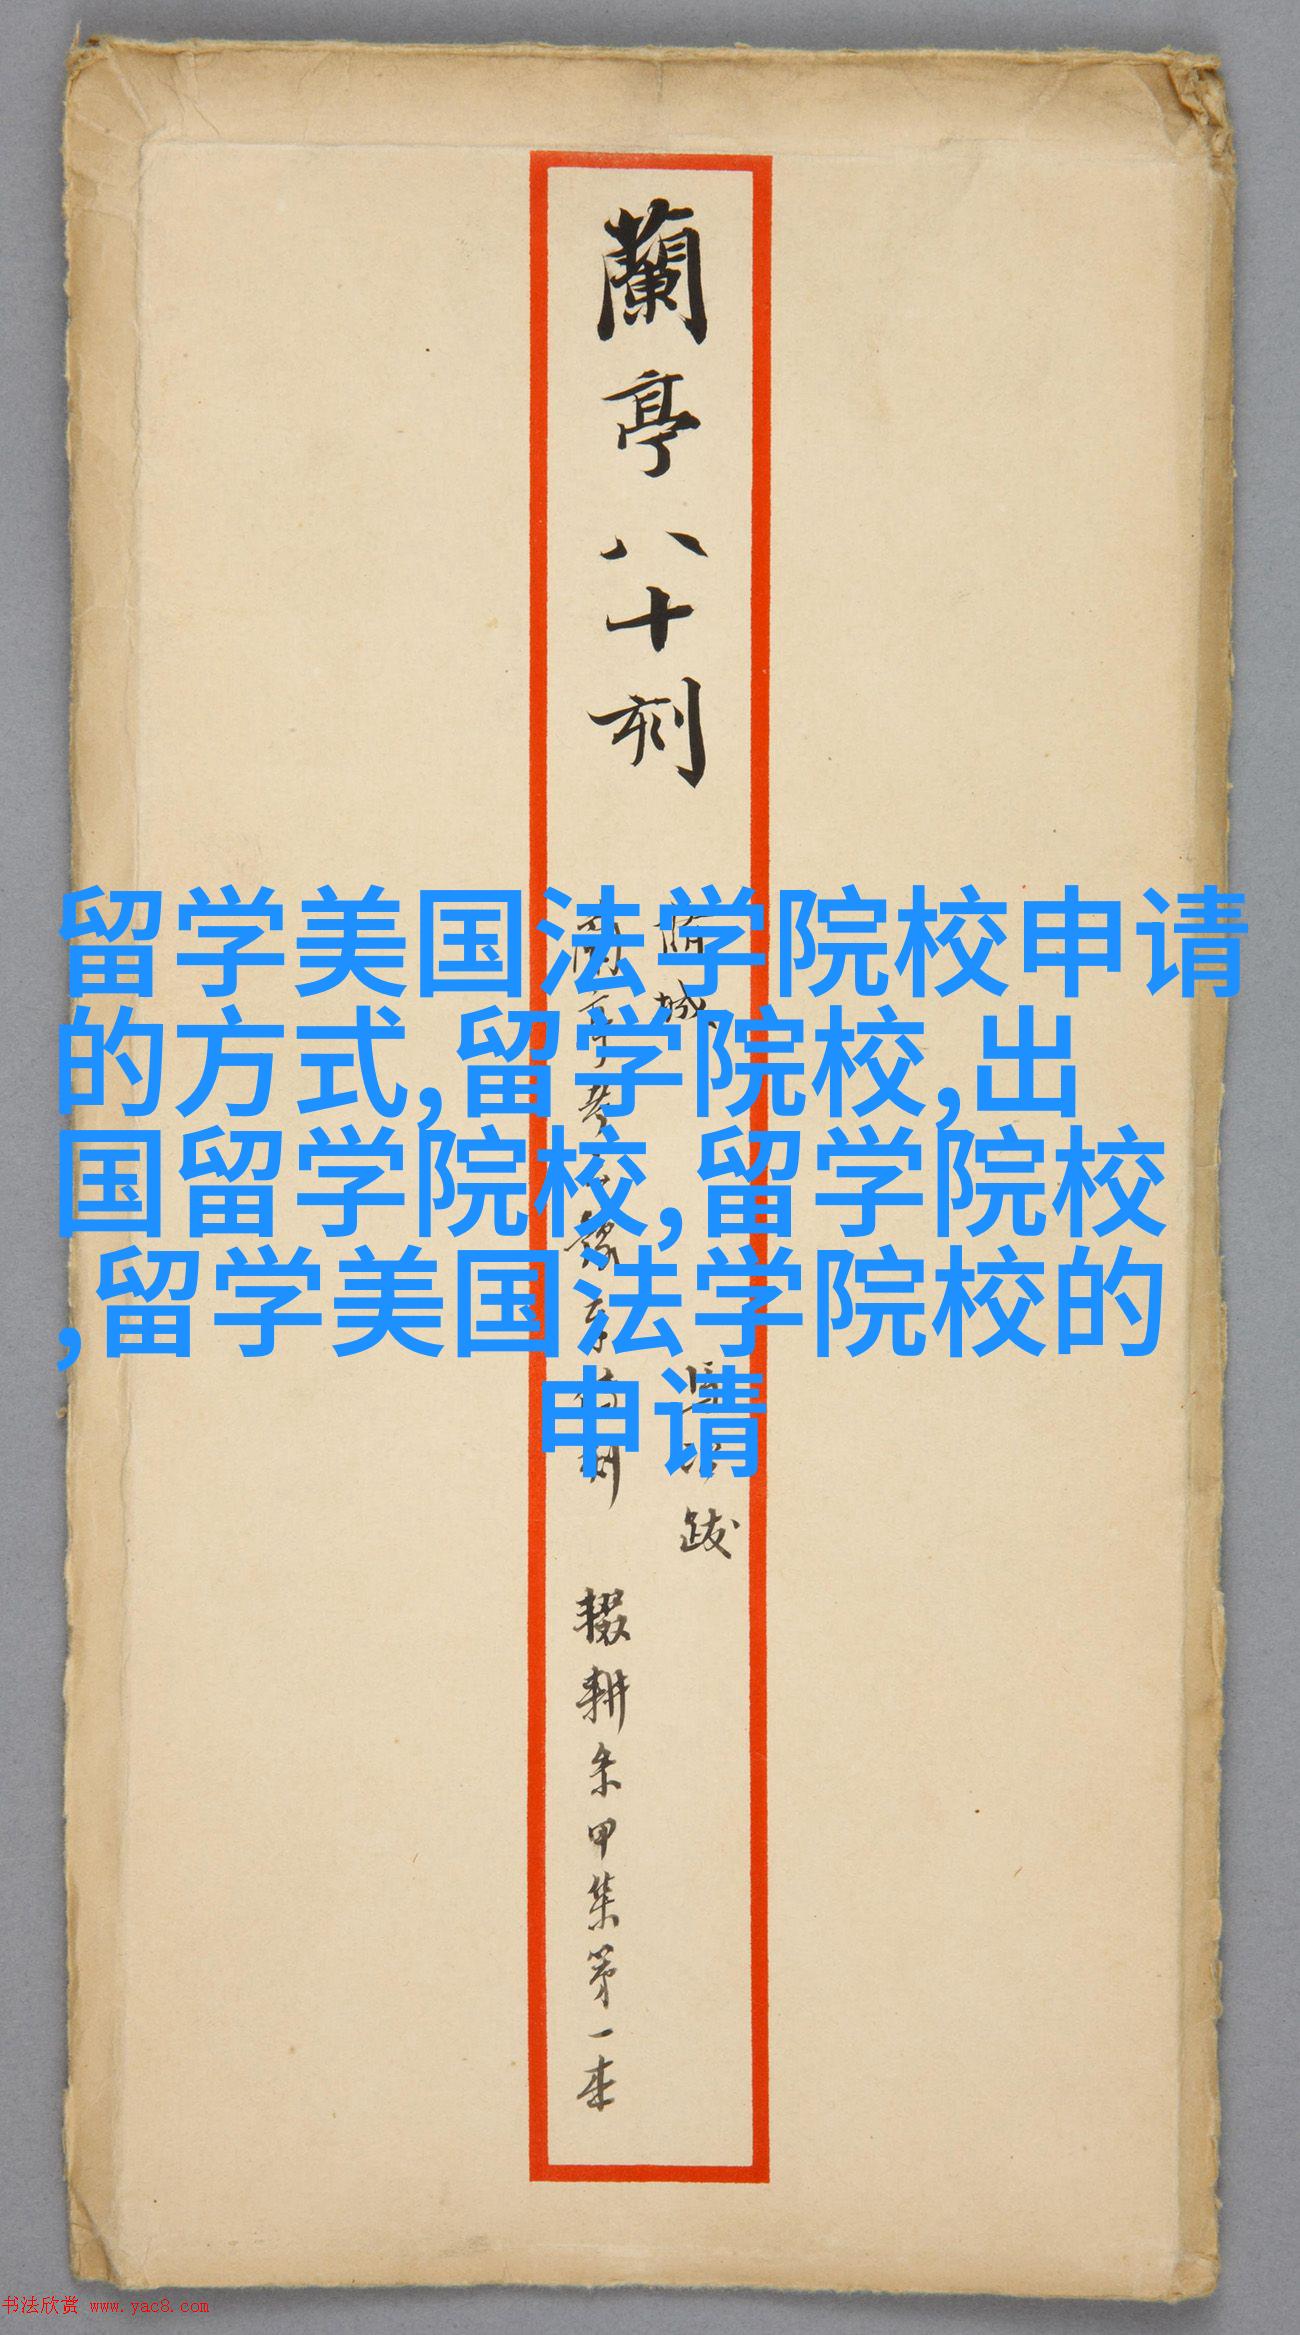 蘭亭八十刻
留学美国法学院校申请
的方式,留学院校,出
国留学院校,留学院校
,留学美国法学院校的
申请
跋
輟耕
甲集第一本
书法欣赏 www.yac8.com